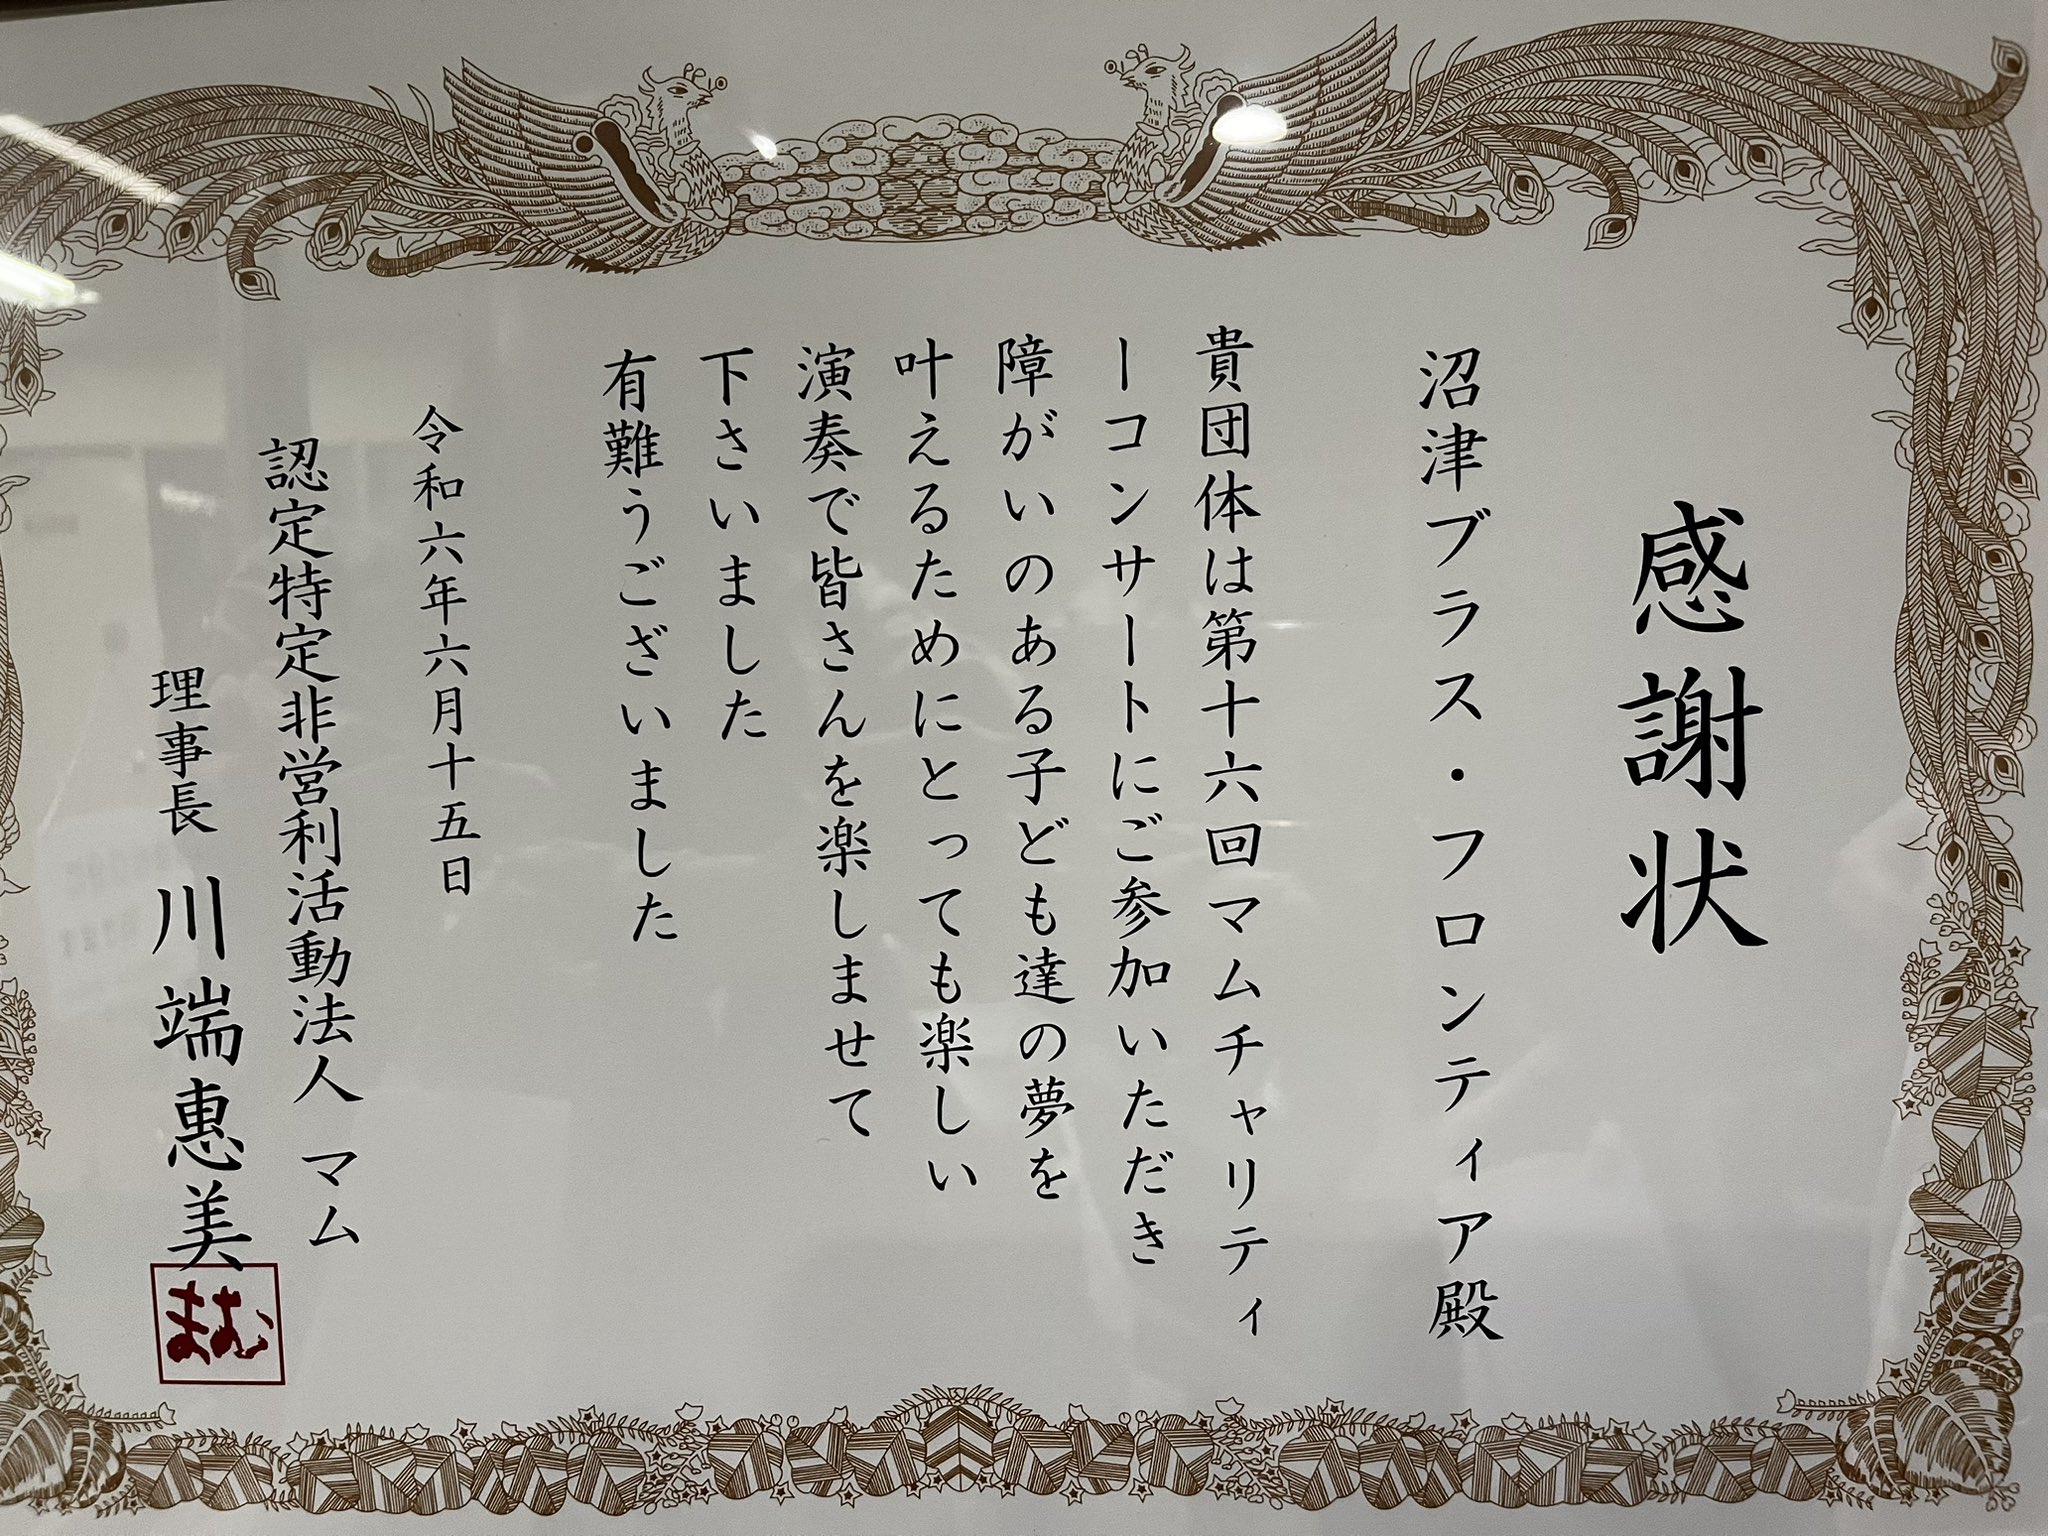 感謝状
沼津ブラス・フロンティア殿
貴団体は第十六回マムチャリティ
ーコンサートにご参加いただき
障がいのある子ども達の夢を
叶えるためにとっても楽しい
演奏で皆さんを楽しませて
下さいました
有難うございました
令和六年六月十五日
認定特定非営利活動法人 マム
理事長 川端恵美
まむ